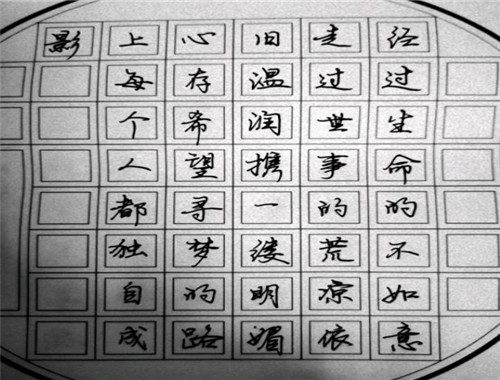 经过生命的不如意
走过世事的荒凉依
旧温润携一缕明媚
心存希望寻梦的路
上每个人都独自成
影